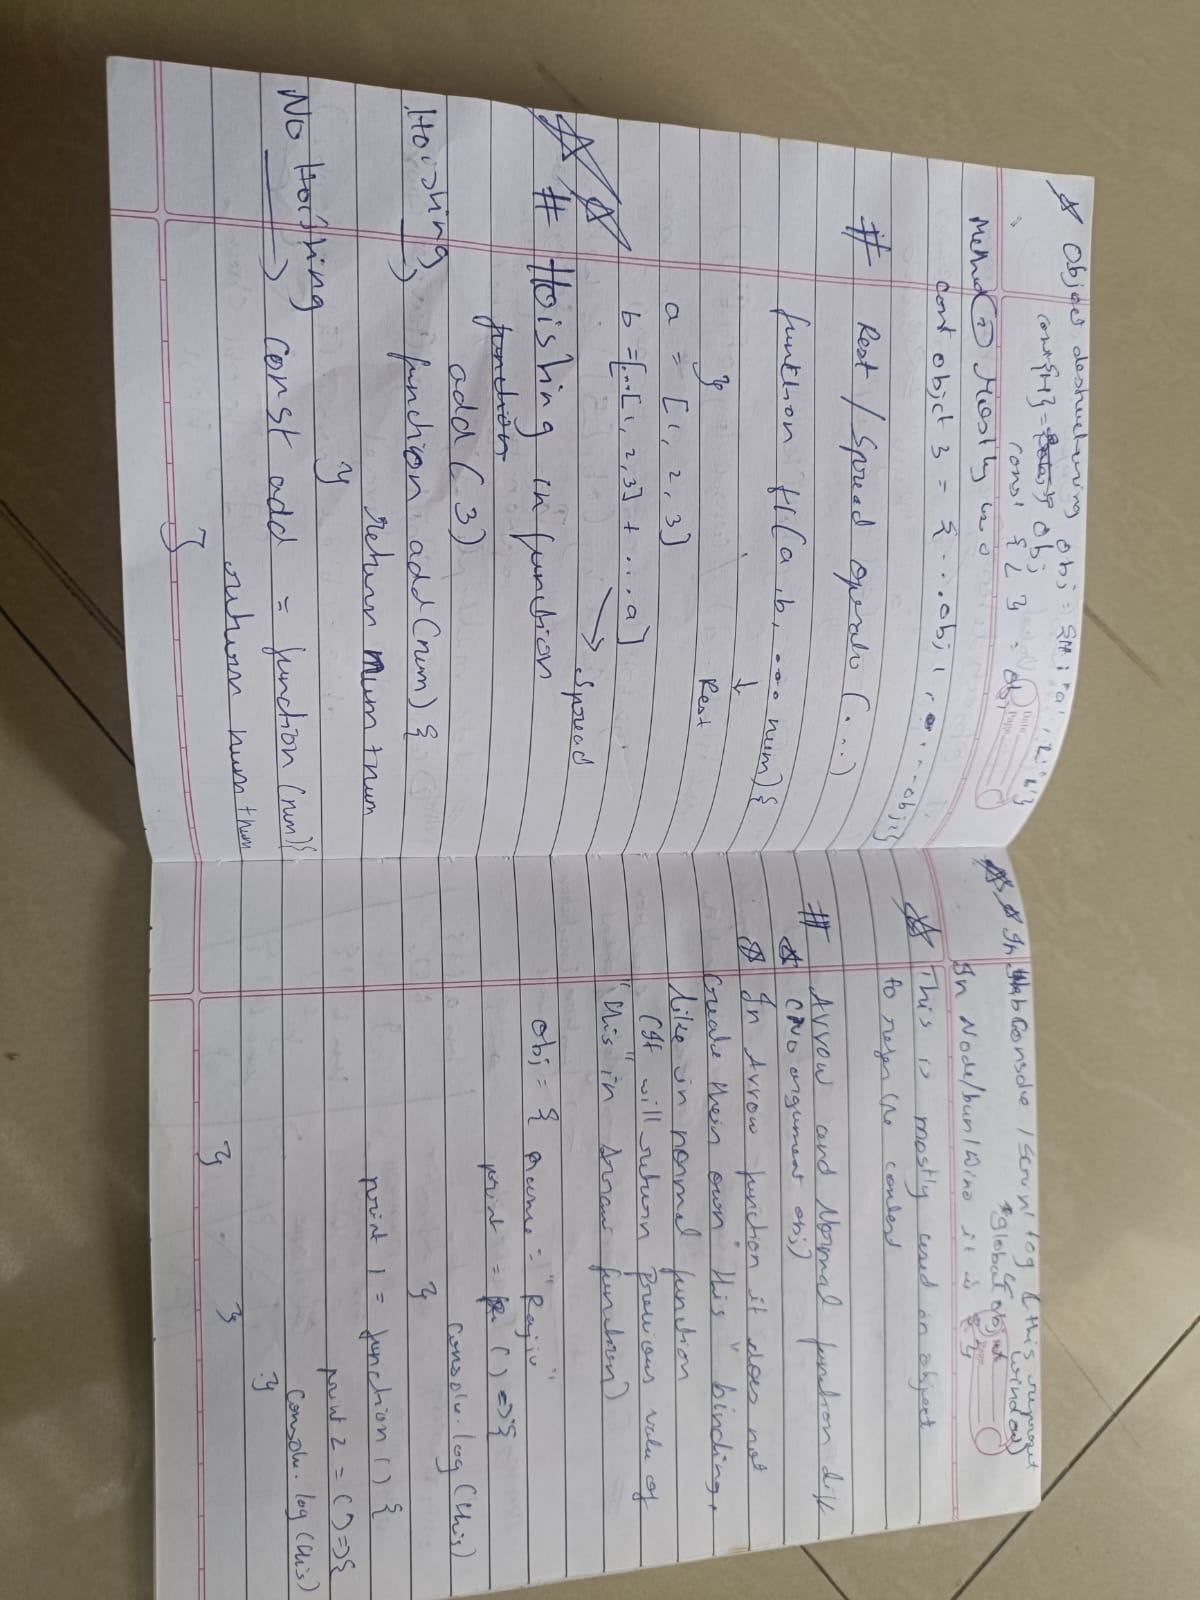 ☆ Object destructuring obj = {H: 'a', L: 'b'}
const {H} = obj
const { L } = obj
Method ② Mostly used
const objct 3 = { ...obj1, ...obj2}
# Rest / Spread operato (...)
function H(a, b, ... num) {
↓
Rest
}
a = [1, 2, 3]
b = [...[1, 2, 3] + ...a]
→ Spread
# Hoishing in function
function
add (3)
Hoishing → function add(num) {
return num + num
}
No Hoishing → const add = function (num) {
return num + num
}
☆☆ In Web Console / (this represent window)
In Node/bun/ it is global obj
{}
☆ This is mostly used in object
to refer the context
# Arrow and Normal function diff
☆ (No argument obj)
☆ In Arrow function it does not
Create their own "this" binding,
like in normal function
(It will return previous value of
"this" in Arrow function)
obj = { name: "Rajiv"
print = () => {
console.log (this)
}
print 1 = function () {
print 2 = () => {
console.log (this)
}
}
}